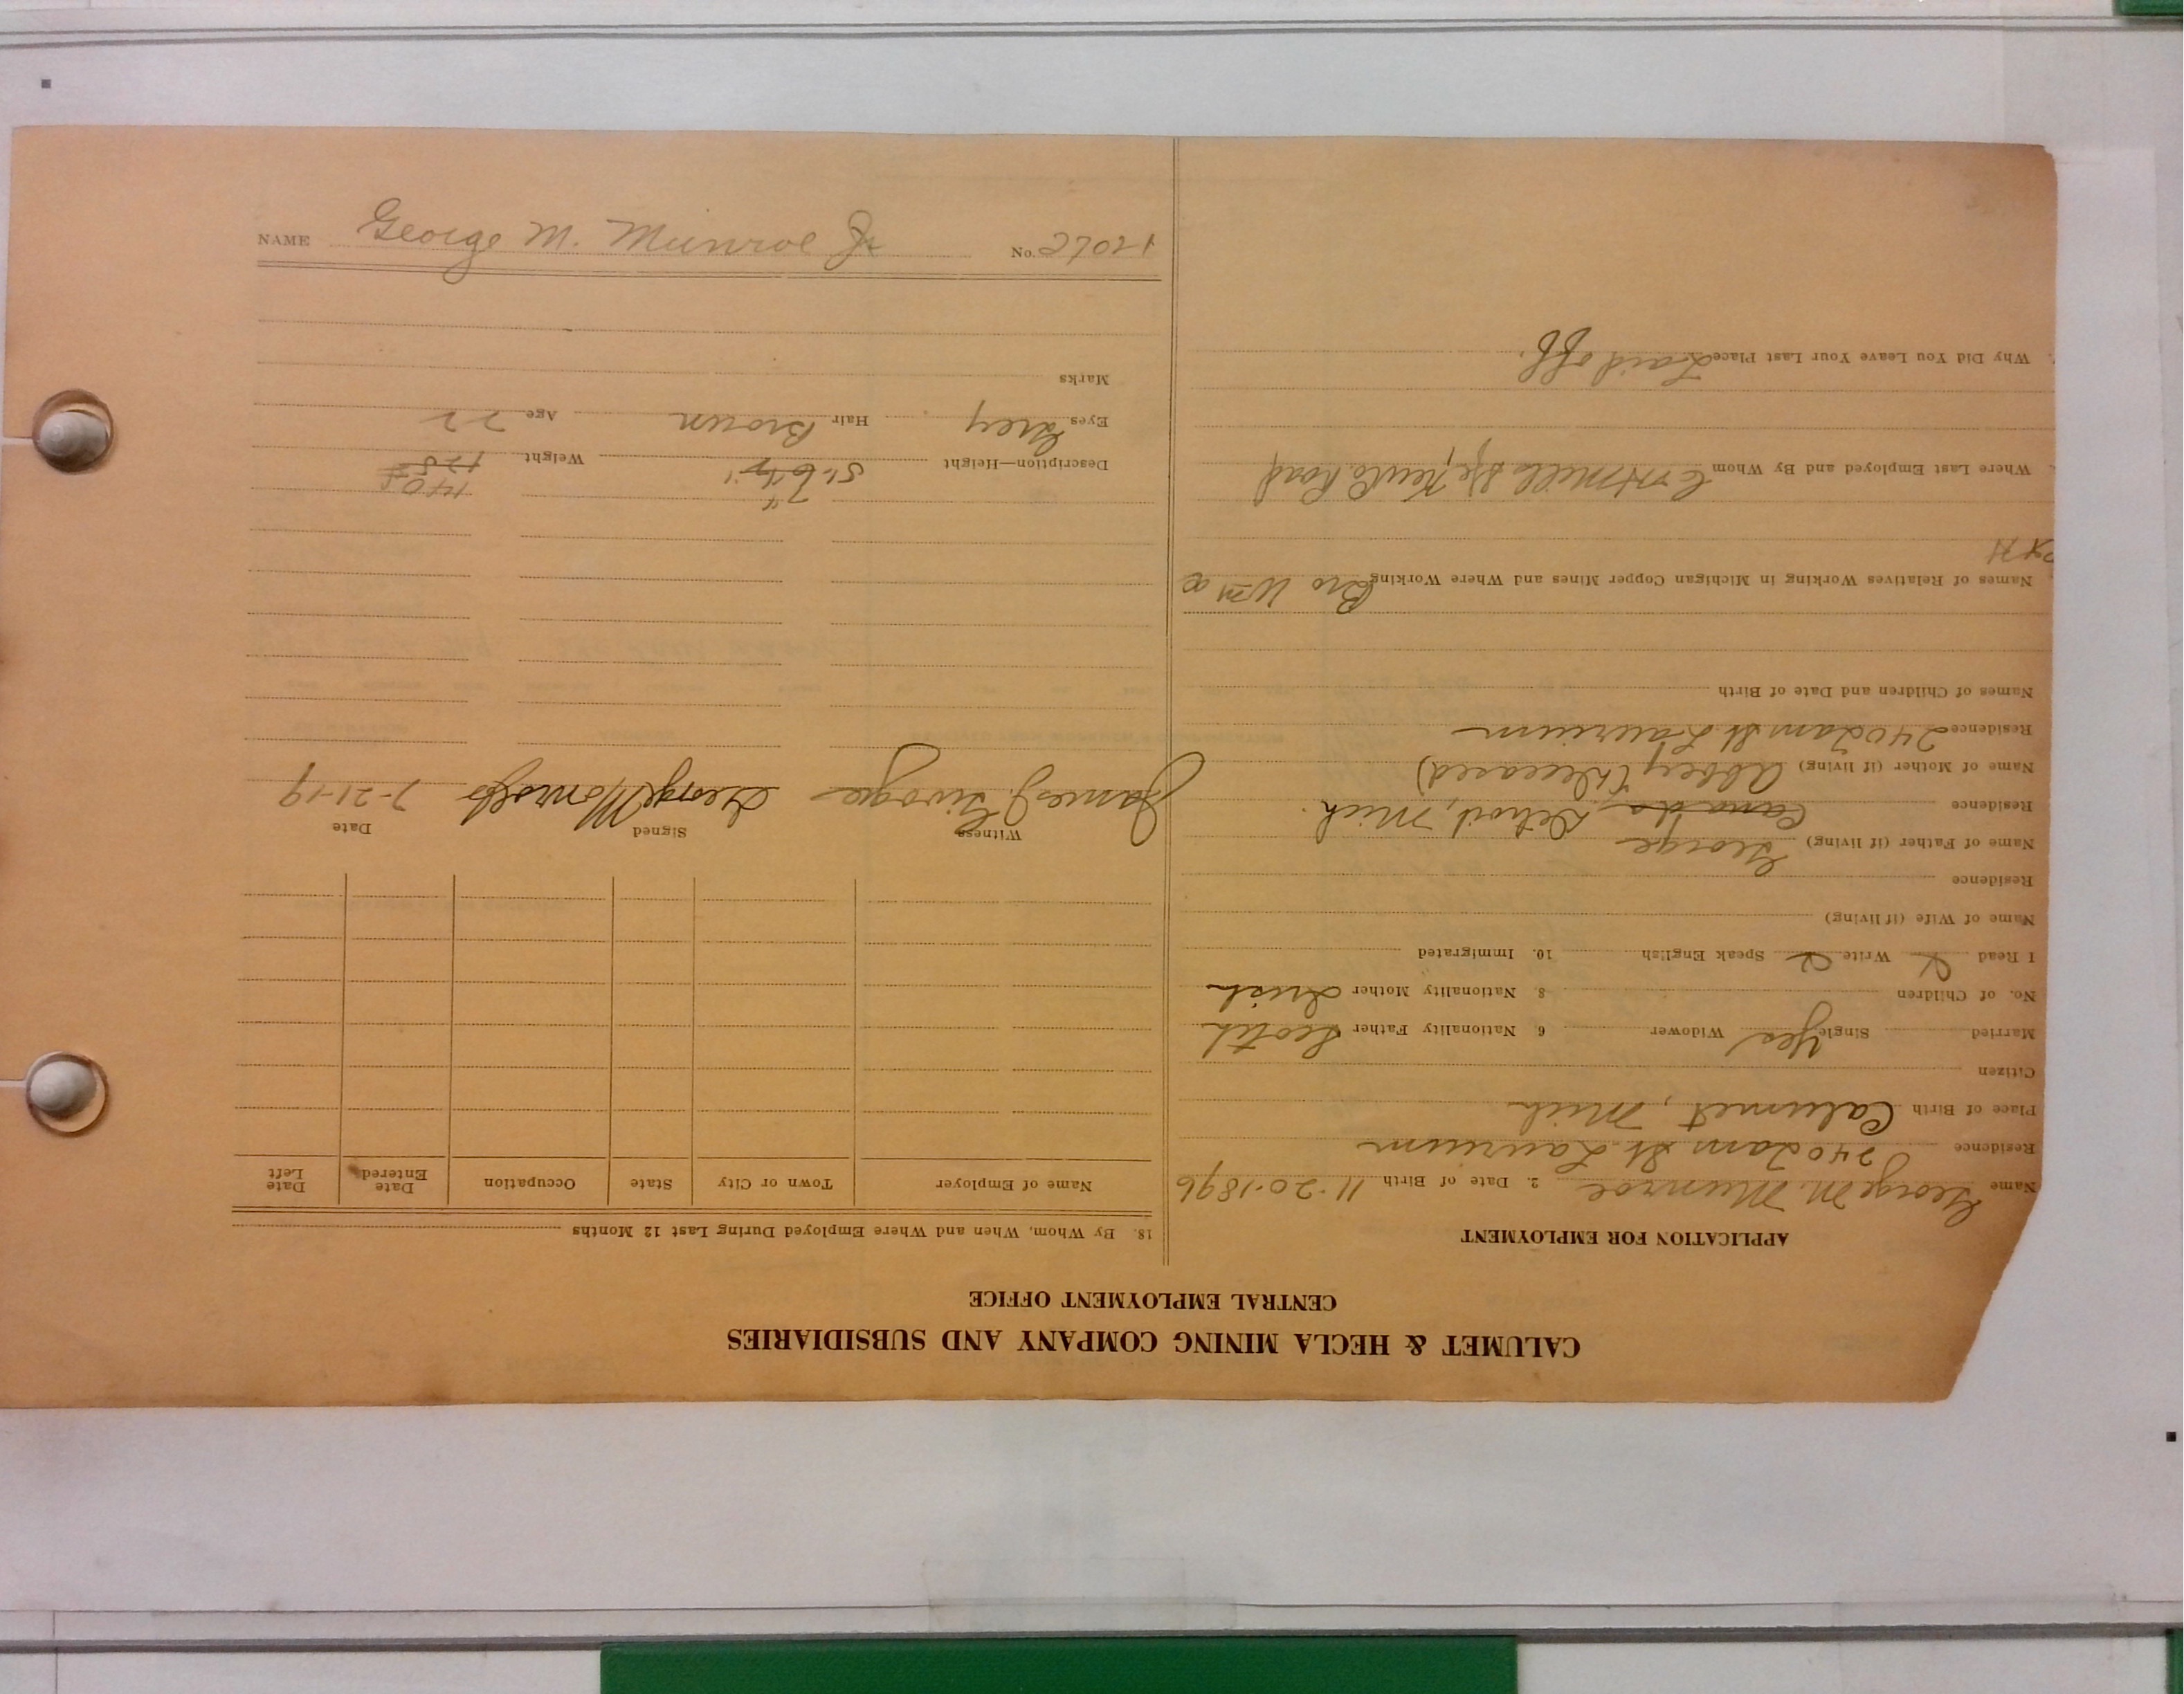 CALUMET & HECLA MINING COMPANY AND SUBSIDIARIES
CENTRAL EMPLOYMENT OFFICE
APPLICATION FOR EMPLOYMENT
Name George M. Munroe 2. Date of Birth 11-20-1896
Residence 240 Iam St. Laurium
Place of Birth Calumet, Mich
Citizen
Married Single Yes Widower 6. Nationality Father Scotch
No. of Children 8. Nationality Mother Irish
I Read Write Speak English 10. Immigrated
Name of Wife (if living)
Residence
Name of Father (if living) George
Residence Canada Detroit, Mich.
Name of Mother (if living) Abbey (Deceased)
Residence 240 Iam St. Laurium
Names of Children and Date of Birth
Names of Relatives Working in Michigan Copper Mines and Where Working Bro Wm
Where Last Employed and By Whom Road
Why Did You Leave Your Last Place Laid off.
18. By Whom, When and Where Employed During Last 12 Months
Name of Employer Town or City State Occupation Date Entered Date Left
Witness Signed Date
James J. George Monroe Jr 7-21-19
7" 140
Description—Height 5'-6 Weight 128
Eyes Grey Hair Brown Age 22
Marks
NAME George M. Munroe Jr No.